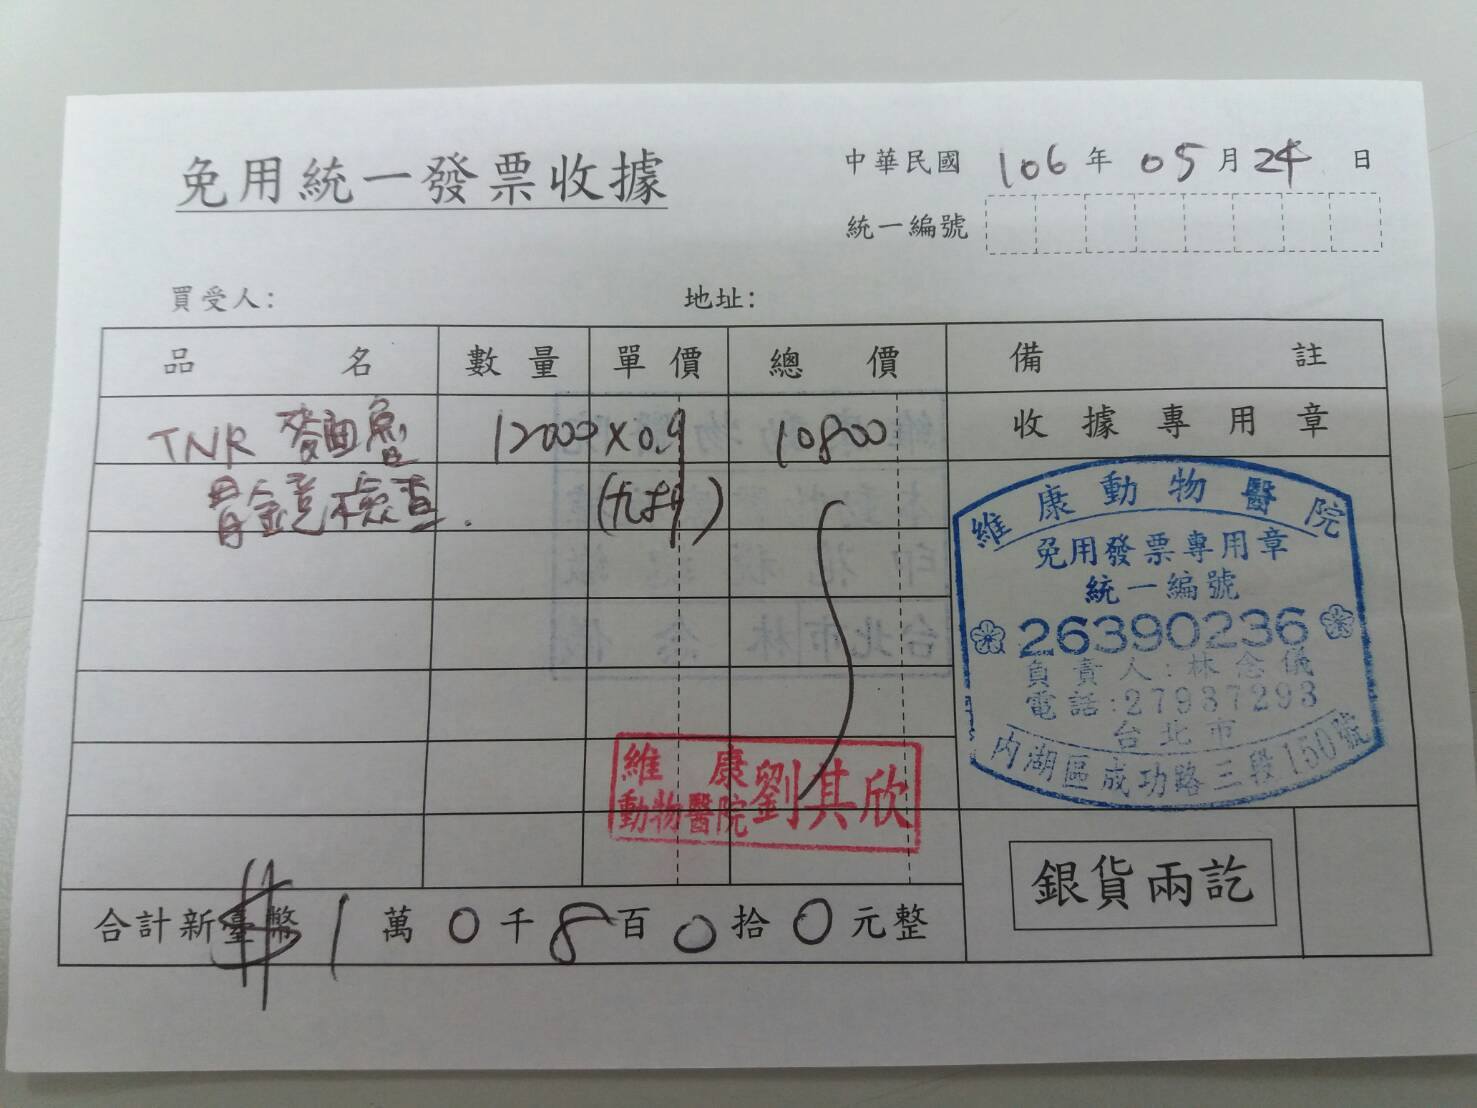 免用統一發票收據
中華民國 106 年 05 月 24 日
統一編號
買受人： 地址：
品名 數量 單價 總價 備註
TNR 麥面魚 12000 x0.9 10800 收據專用章
胃鏡檢查. (九折)
維康動物醫院
免用發票專用章
統一編號
26390236
負責人：林念儀
電話：27937293
台北市
內湖區成功路三段150號
維康
動物醫院 劉其欣
合計新臺幣 $ 1 萬 0 千 8 百 0 拾 0 元整
銀貨兩訖